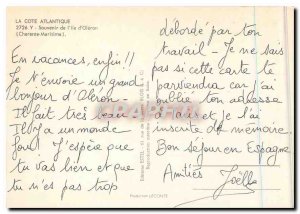 LA COTE ATLANTIQUE
2726.Y - Souvenir de l'Ile d'Oléron
(Charente-Maritime).
En vacances, enfin !!
Je t'envoie un grand
bonjour d'Oléron -
Il fait très beau
Il y a un monde
fou ! J'espère que
tu vas bien et que
tu n'es pas trop
débordé par ton
travail - Je ne sais
pas si cette carte te
parviendra car j'ai
oublié ton adresse
à Paris et je l'ai
inscrite de mémoire.
Bon séjour en Espagne
Amitiés
Joëlle